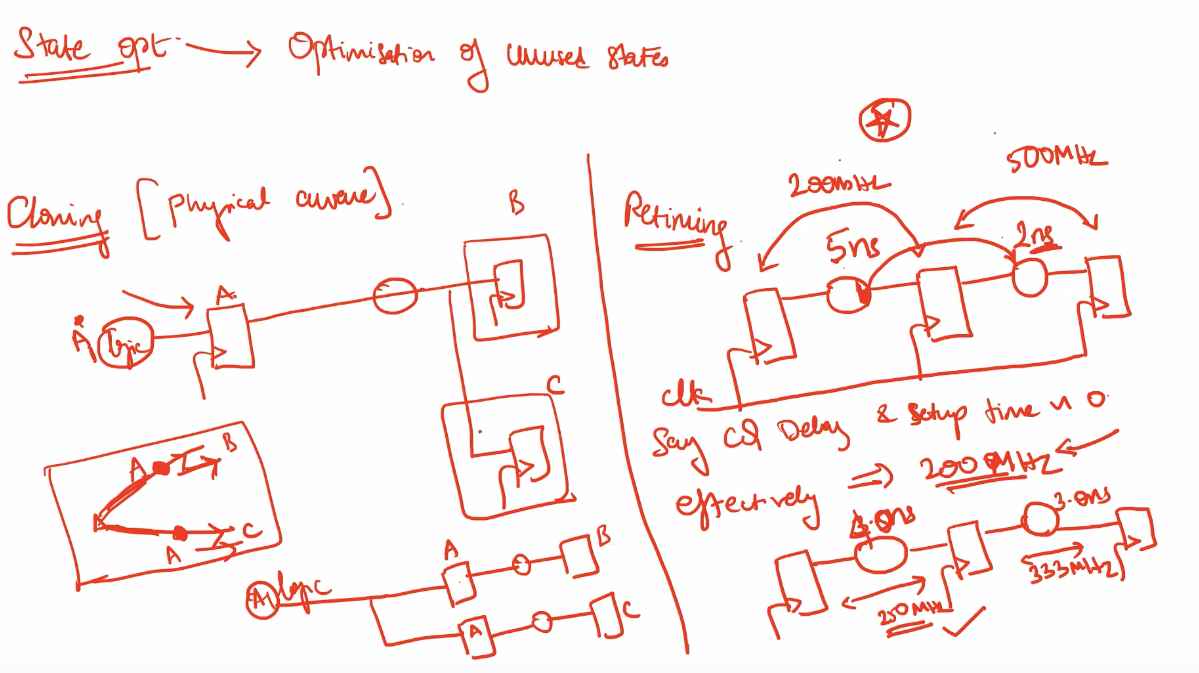 State opt. → Optimisation of unused states
Cloning [Physical aware]
A
logic
A
B
C
A
B
A
A
C
A1
logic
A
B
A
C
Retiming
200MHz
500MHz
5ns
2ns
clk
Say CQ Delay & Setup time is 0
effectively ⇒ 200MHz
4.0ns
3.0ns
250MHz
333MHz